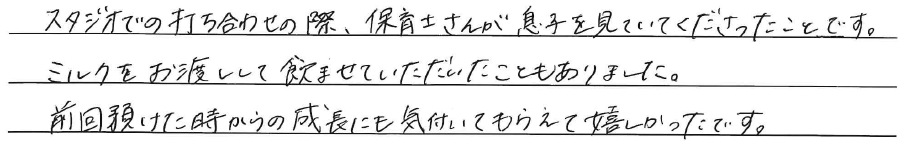 スタジオでの打ち合わせの際、保育士さんが息子を見ていてくださったことです。
ミルクをお渡しして飲ませていただいたこともありました。
前回預けた時からの成長にも気付いてもらえて嬉しかったです。